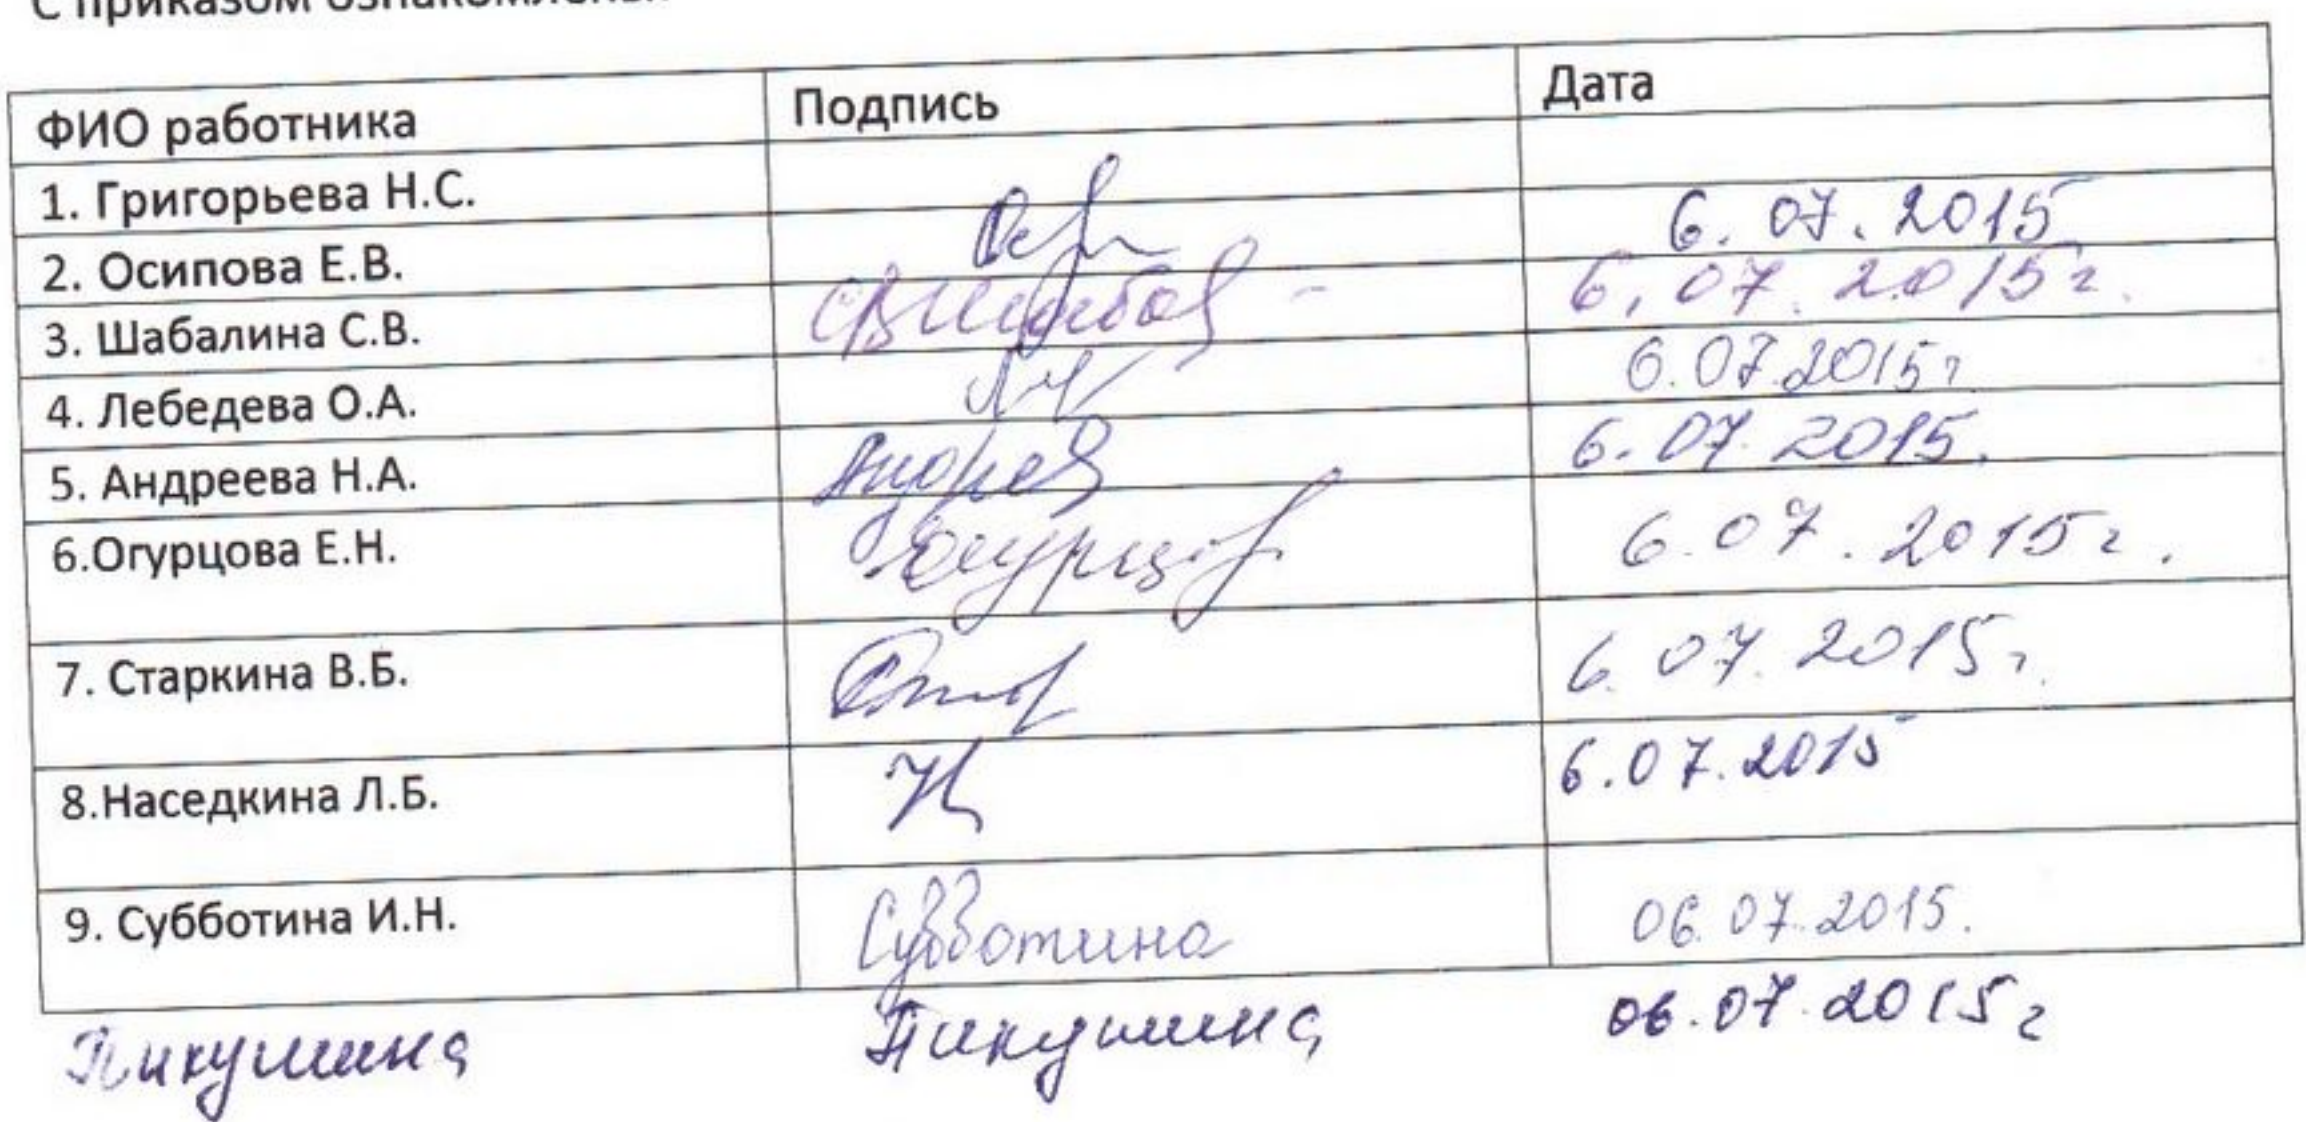 С приказом ознакомлены
ФИО работника Подпись Дата
1. Григорьева Н.С.
2. Осипова Е.В. 6.07.2015
3. Шабалина С.В. 6.07.2015г.
4. Лебедева О.А. 6.07.2015г
5. Андреева Н.А. 6.07.2015.
6.Огурцова Е.Н. 6.07.2015г.
7. Старкина В.Б. 6.07.2015г.
8.Наседкина Л.Б. 6.07.2015
9. Субботина И.Н. Субботина 06.07.2015.
Пикушина Пикушина 06.07.2015г